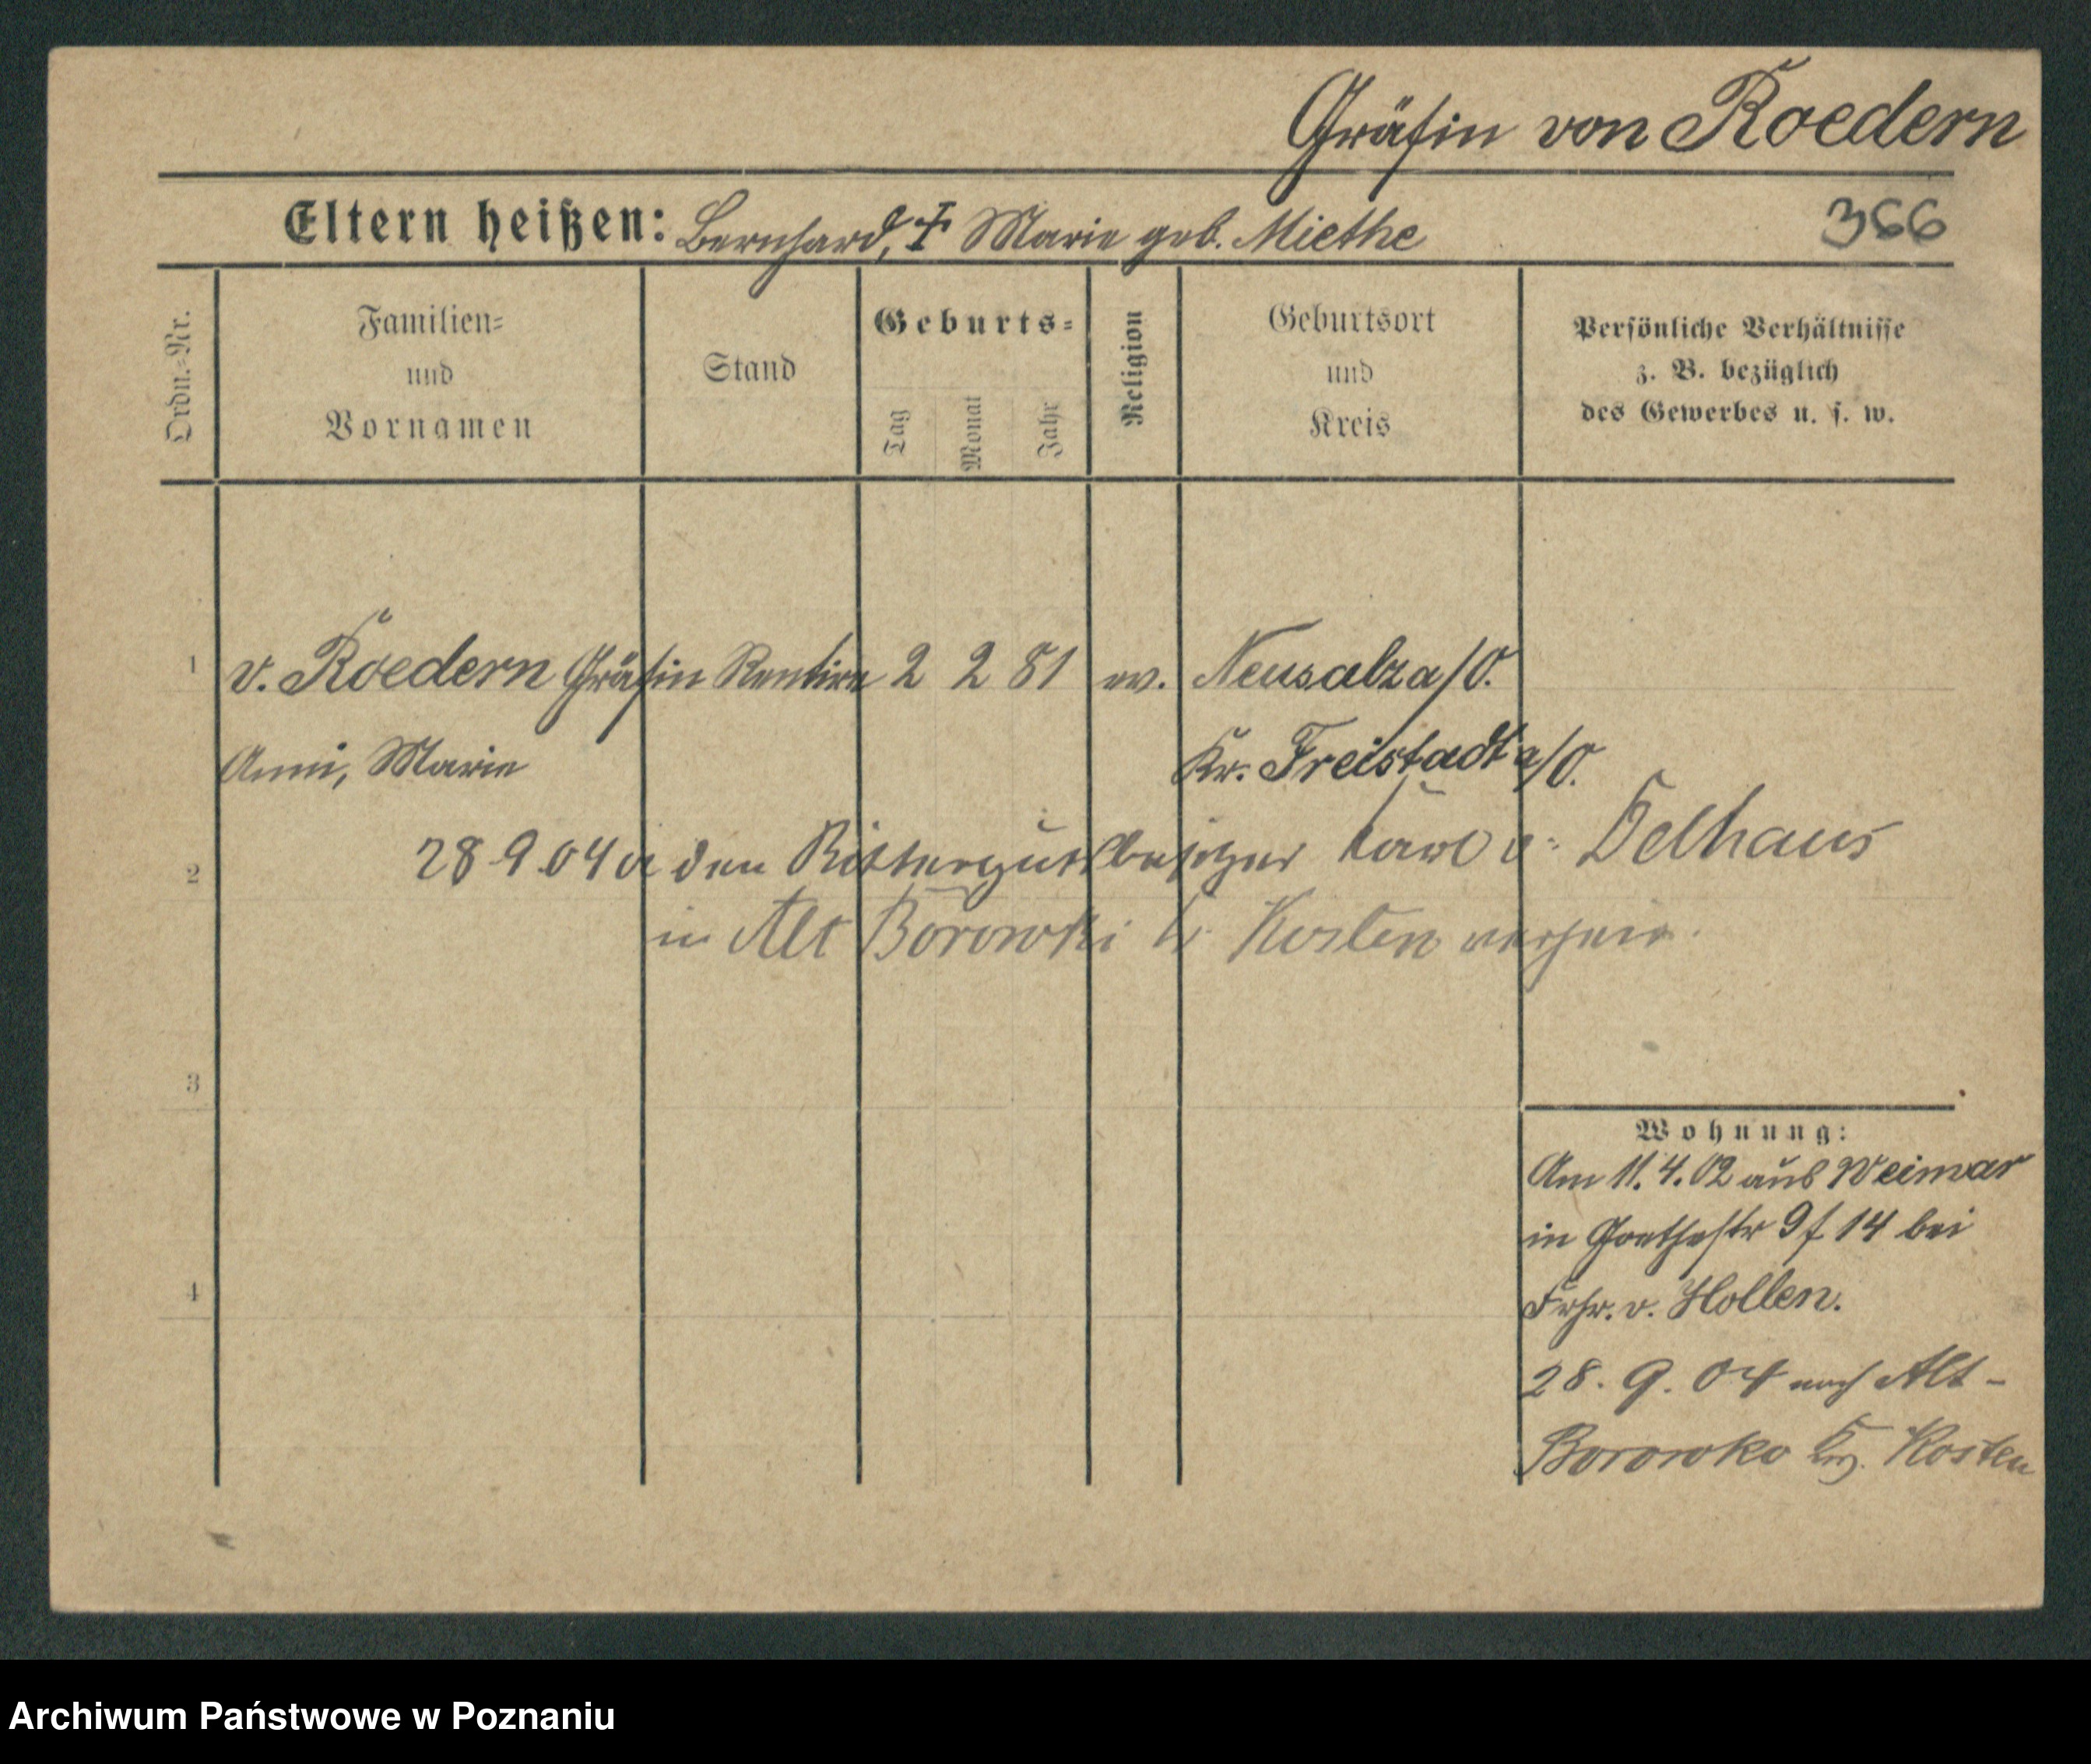 Gräfin von Roedern
Eltern heißen: Bernhard, † Marie geb. Miethe
366
Ordn.=Nr.
Familien=
und
Vornamen
Stand
Geburts=
Tag
Monat
Jahr
Religion
Geburtsort
und
Kreis
Persönliche Verhältnisse
z. B. bezüglich
des Gewerbes u. s. w.
1 v. Roedern Gräfin Rentiere 2 2 81 ev. Neusalz a/O.
Anni, Marie Kr. Freistadt a/O.
2 28 9 04 den Rittergutsbesitzer Karl v. Delhaus
in Alt Borowki Kr. Kosten verheir.
3
Wohnung:
Am 11.4.02 aus Weimar
in Goethestr 9 f 14 bei
4 Frhr. v. Hollen.
28. 9. 04 nach Alt-
Borowko Krs. Kosten
Archiwum Państwowe w Poznaniu